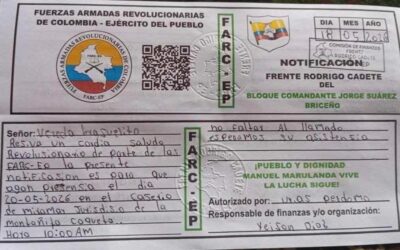 FUERZAS ARMADAS REVOLUCIONARIAS
DE COLOMBIA - EJÉRCITO DEL PUEBLO
FUERZAS ARMADAS REVOLUCIONARIAS DE COLOMBIA
FARC-EP
FARC-EP
DIA MES AÑO
18 05 2026
COMISIÓN DE FINANZAS
NOTIFICACIÓN
FRENTE RODRIGO CADETE
DEL
BLOQUE COMANDANTE JORGE SUÁREZ
BRICEÑO
Señor: Vereda
Resiva un saludo
Revolusionario de parte de las
FARC-EP la presente
notificasion es para que
agan presensia el dia
20-05-2026 en el Caserio
de miramar de
montañita Caqueta.
Hora 10:00AM
FARC-EP
no faltar Al llamado
esperamos su asistensia
¡PUEBLO Y DIGNIDAD
MANUEL MARULANDA VIVE
LA LUCHA SIGUE!
Autorizado por: Perdomo
Responsable de finanzas y/o organización:
Yeison